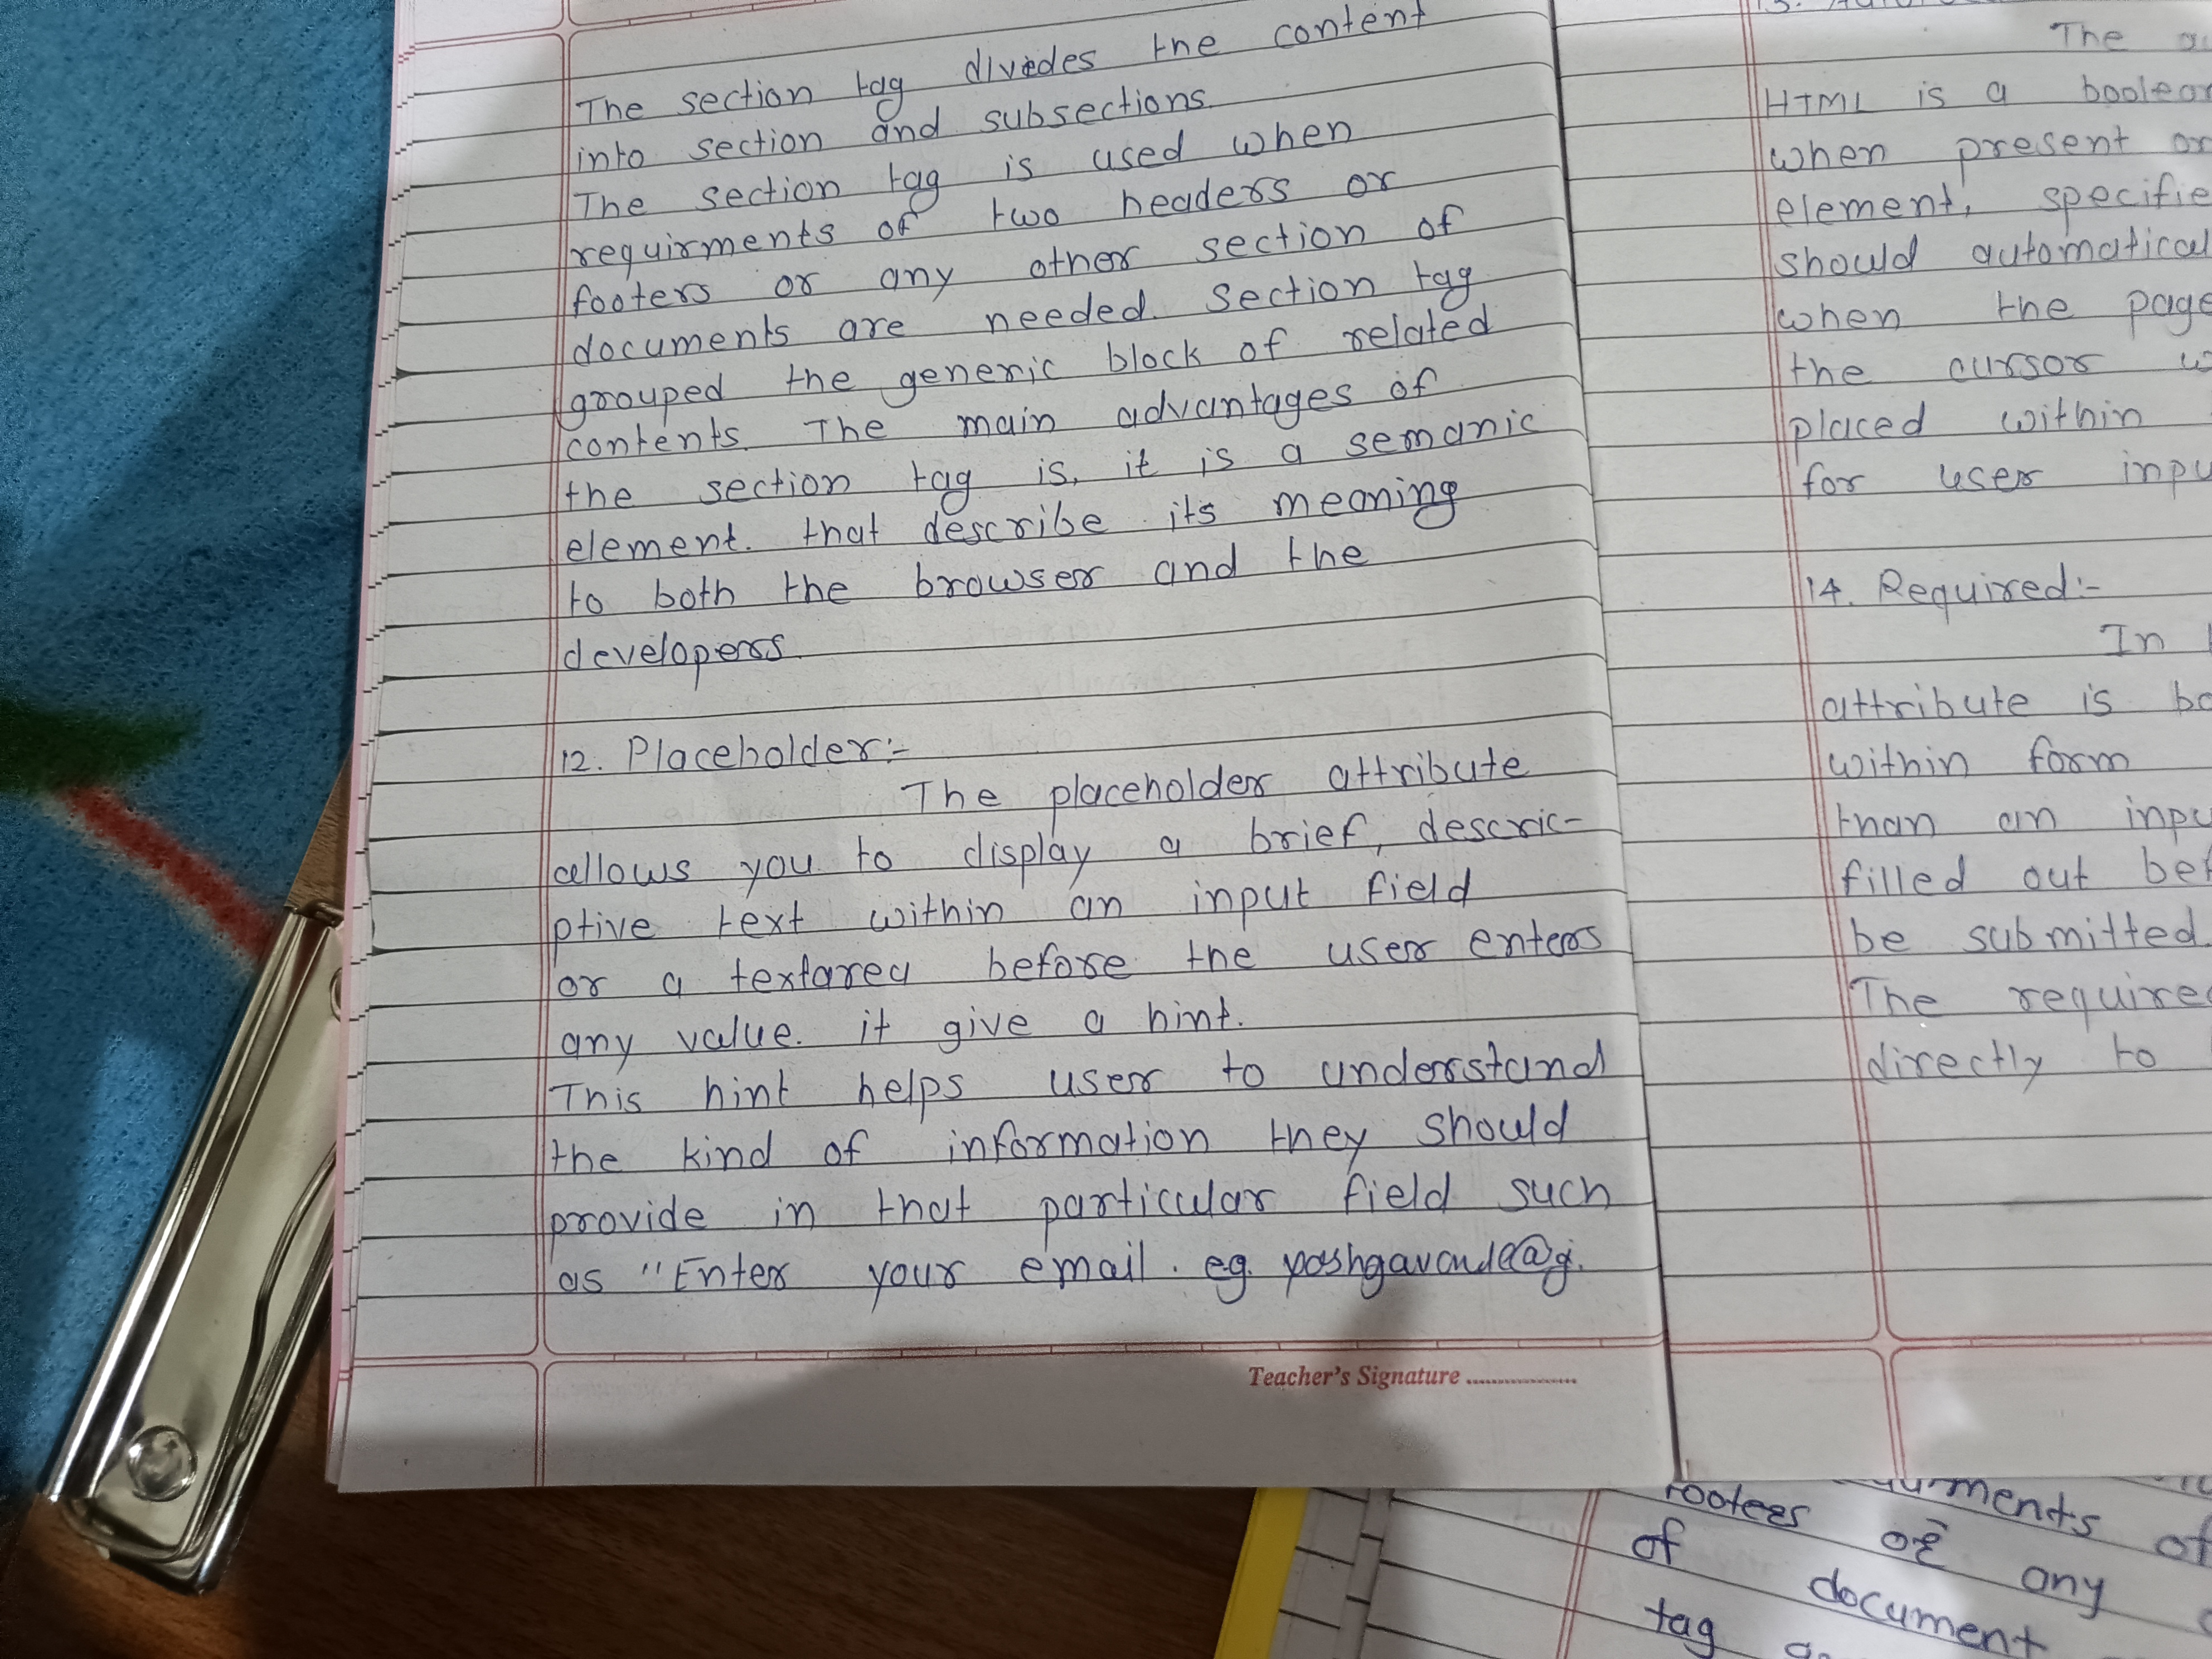 The section tag divedes the content
into section and subsections.
The section tag is used when
requirments of two headers or
footers or any other section of
documents are needed. Section tag
grouped the generic block of related
contents. The main advantages of
the section tag is, it is a semanic
element. that describe its meaning
to both the browser and the
developers.
12. Placeholder:-
The placeholder attribute
allows you to display a brief, descric-
ptive text within an input field
or a textarea before the user enters
any value. it give a hint.
This hint helps user to understand
the kind of information they should
provide in that particular field such
as "Enter your email. eg.
Teacher's Signature ..................
The
HTML is a
when present
element,
should
when the page
the cursor
placed within
for user
14. Required:-
In
attribute is
within form
than an
filled out
be submitted.
The
directly to
footers or any
of document
tag